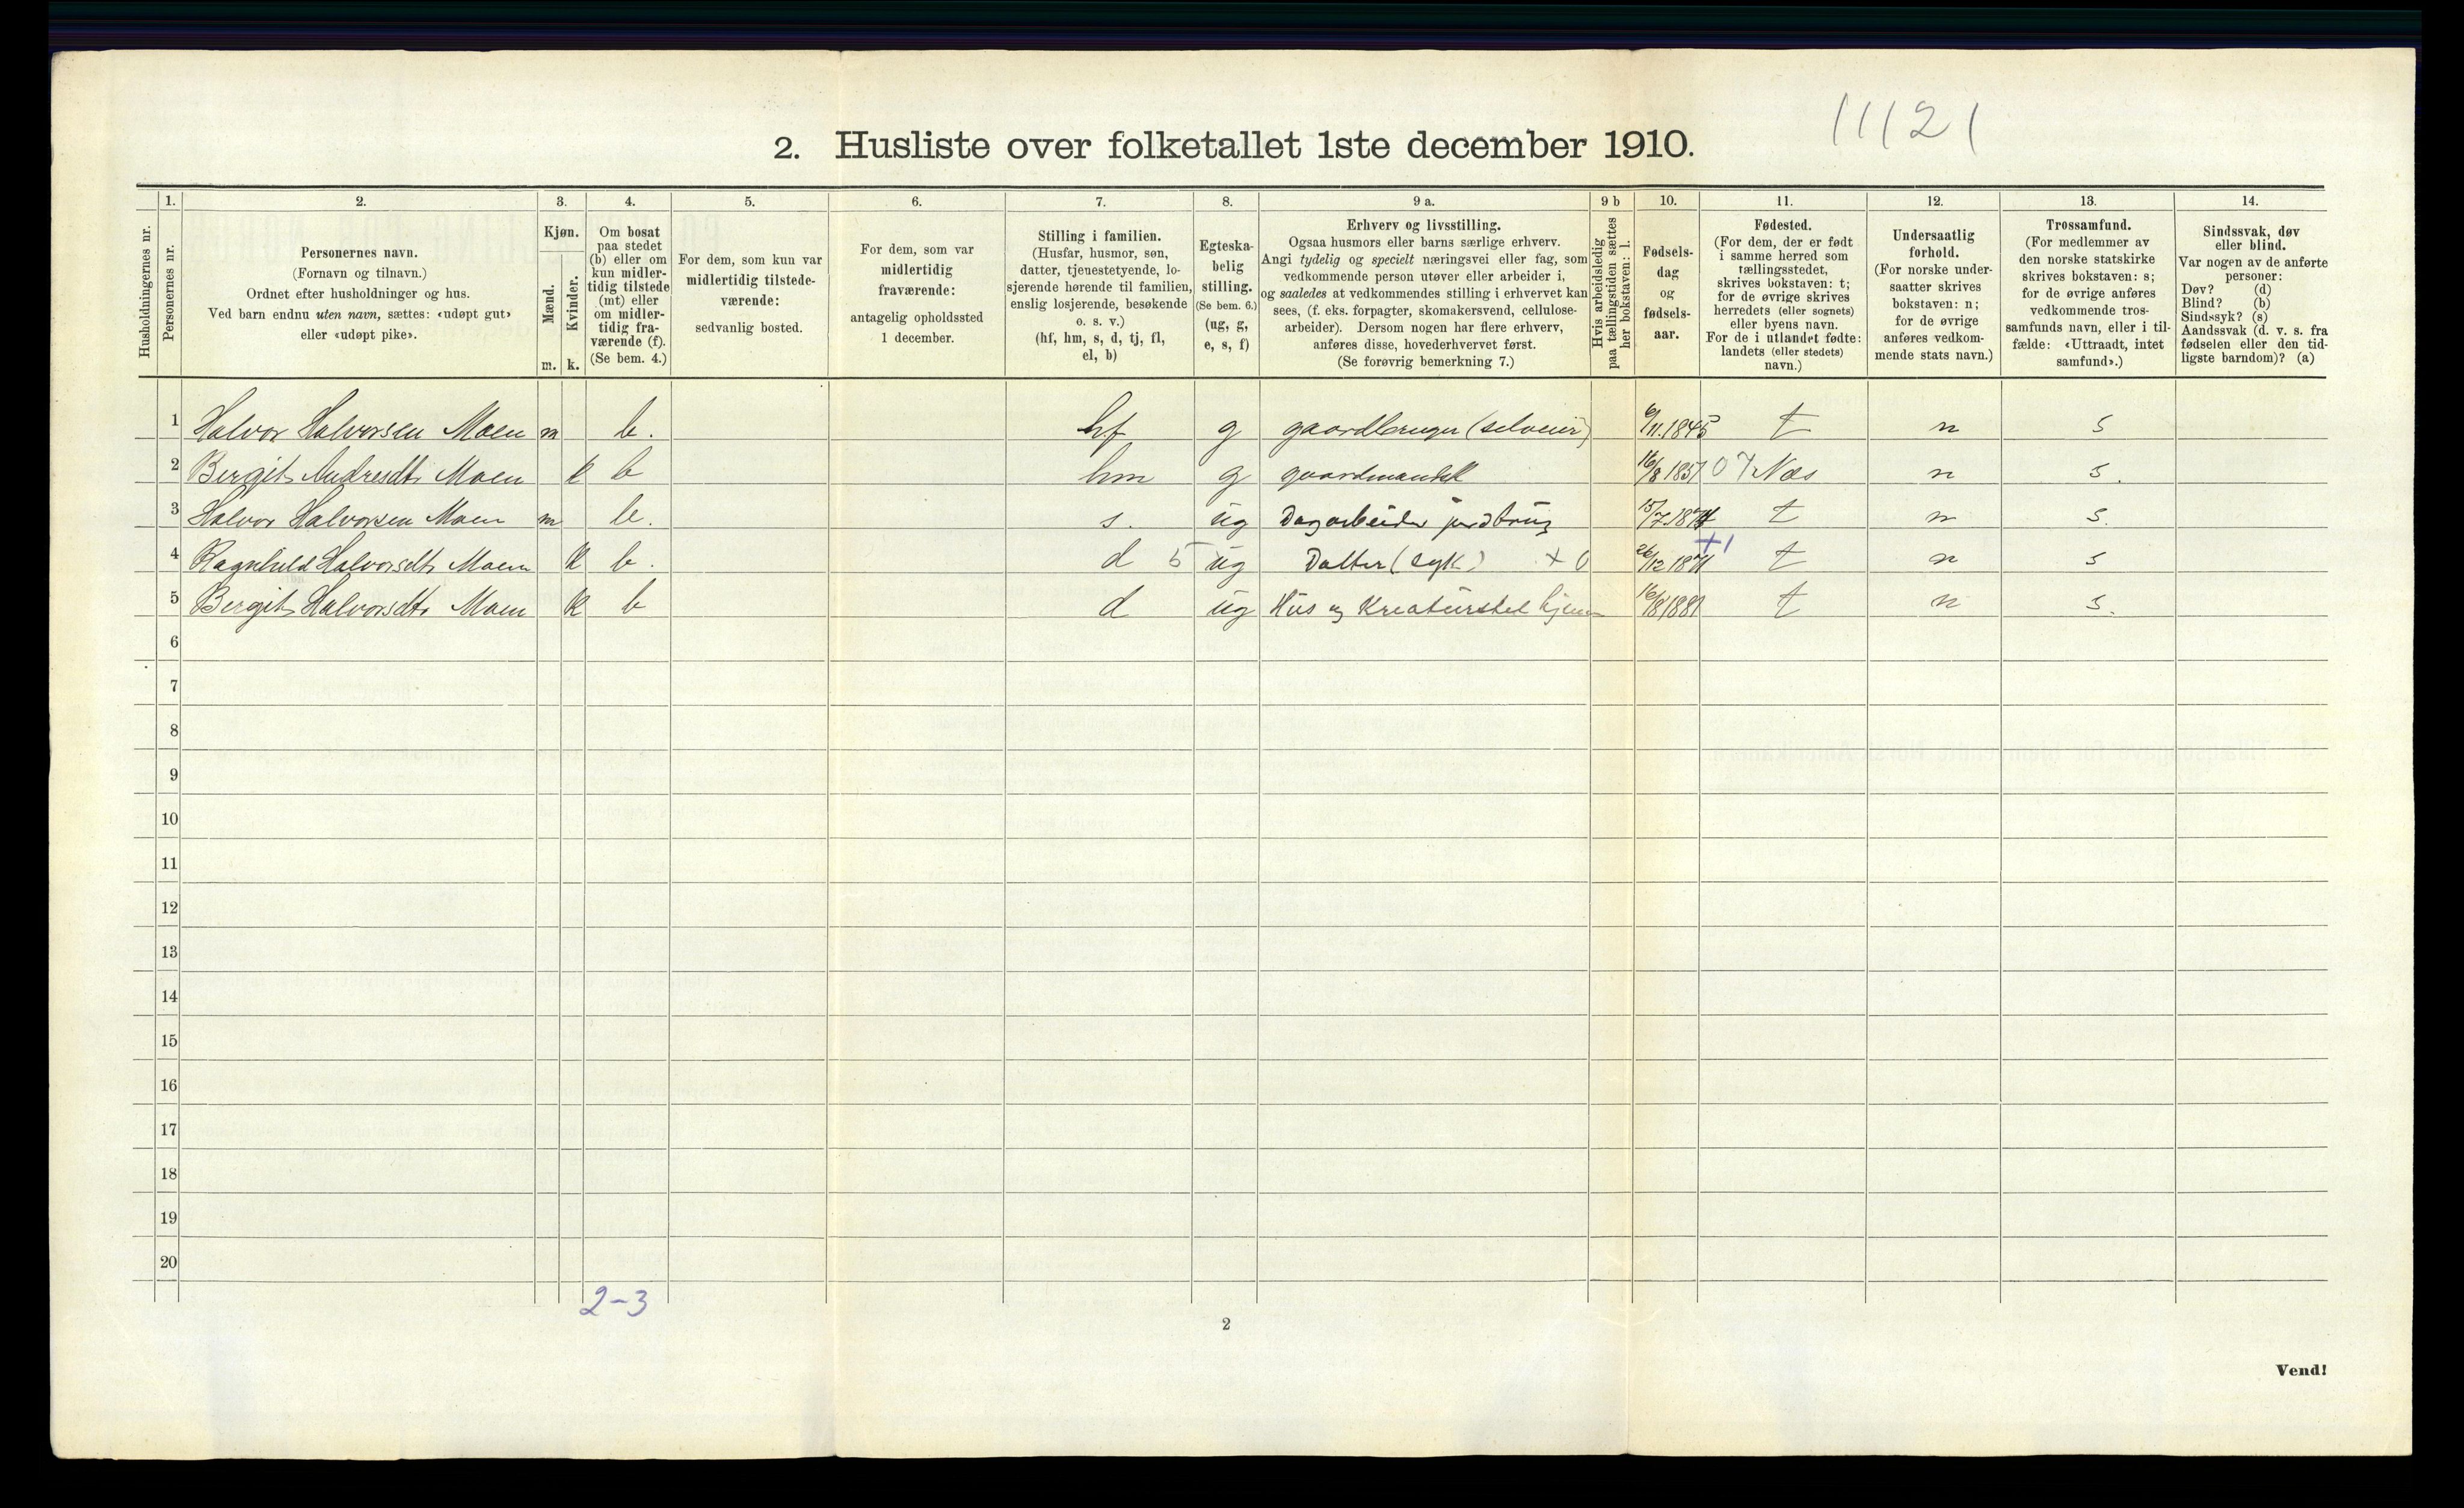 11121
2. Husliste over folketallet 1ste december 1910.
Husholdningernes nr.
1.
Personernes nr.
2.
Personernes navn.
(Fornavn og tilnavn.)
Ordnet efter husholdninger og hus.
Ved barn endnu uten navn, sættes: «udøpt gut»
eller «udøpt pike».
3.
Kjøn.
Mænd.
Kvinder.
m. k.
4.
Om bosat
paa stedet
(b) eller om
kun midler-
tidig tilstede
(mt) eller
om midler-
tidig fra-
værende (f).
(Se bem. 4.)
5.
For dem, som kun var
midlertidig tilstede-
værende:
sedvanlig bosted.
6.
For dem, som var
midlertidig
fraværende:
antagelig opholdssted
1 december.
7.
Stilling i familien.
(Husfar, husmor, søn,
datter, tjenestetyende, lo-
sjerende hørende til familien,
enslig losjerende, besøkende
o. s. v.)
(hf, hm, s, d, tj, fl,
el, b)
8.
Egteska-
belig
stilling.
(Se bem. 6.)
(ug, g,
e, s, f)
9 a.
Erhverv og livsstilling.
Ogsaa husmors eller barns særlige erhverv.
Angi tydelig og specielt næringsvei eller fag, som
vedkommende person utøver eller arbeider i,
og saaledes at vedkommendes stilling i erhvervet kan
sees, (f. eks. forpagter, skomakersvend, cellulose-
arbeider). Dersom nogen har flere erhverv,
anføres disse, hovederhvervet først.
(Se forøvrig bemerkning 7.)
9 b
Hvis arbeidsledig
paa tællingstiden sættes
her bokstaven: l.
10.
Fødsels-
dag
og
fødsels-
aar.
11.
Fødested.
(For dem, der er født
i samme herred som
tællingsstedet,
skrives bokstaven: t;
for de øvrige skrives
herredets (eller sognets)
eller byens navn.
For de i utlandet fødte:
landets (eller stedets)
navn.)
12.
Undersaatlig
forhold.
(For norske under-
saatter skrives
bokstaven: n;
for de øvrige
anføres vedkom-
mende stats navn.)
13.
Trossamfund.
(For medlemmer av
den norske statskirke
skrives bokstaven: s;
for de øvrige anføres
vedkommende tros-
samfunds navn, eller i til-
fælde: «Uttraadt, intet
samfund».)
14.
Sindssvak, døv
eller blind.
Var nogen av de anførte
personer:
Døv? (d)
Blind? (b)
Sindssyk? (s)
Aandssvak (d. v. s. fra
fødselen eller den tid-
ligste barndom)? (a)
1 Halvor Halvorsen Moen m b. hf g gaardbruger (selveier) 6/11.1845 t n s
2 Bergit Andresdt. Moen k b hm g 16/8 1851 07 Næs n s.
3 Halvor Halvorsen Moen m b. s. ug Dagarbeider jordbrug 15/7. t n s.
4 Ragnhild Halvorsdt. Moen k b. d 5 ug Datter (syk) + 0 26/12 +1 t n s
5 Bergit Halvorsdt. Moen k b d ug Hus og Kreaturstel hjem 16/8 1881 t n s.
6
7
8
9
10
11
12
13
14
15
16
17
18
19
20
2-3
2
Vend!